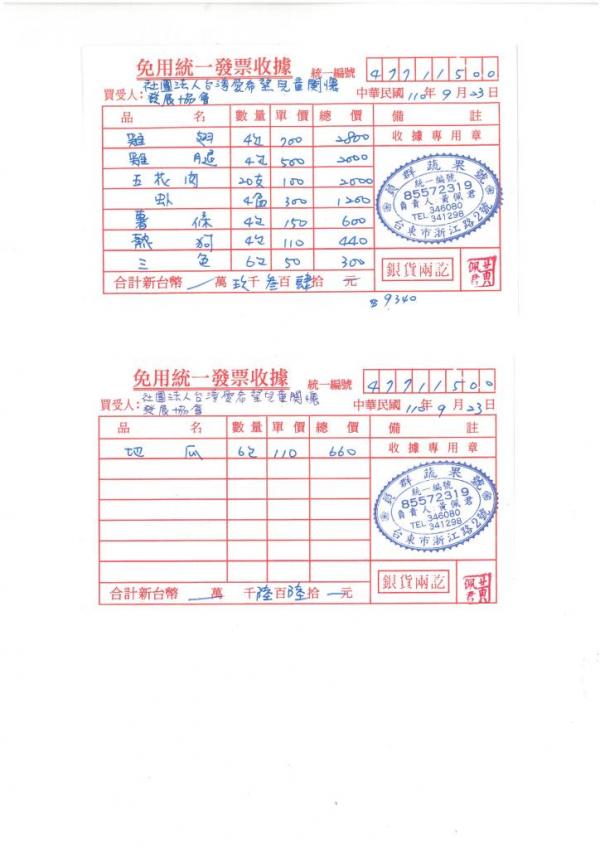 免用統一發票收據 統一編號 47711500
買受人: 社團法人台灣愛希望兒童關懷
發展協會 中華民國 110年 9月 23日
品 名 數量 單價 總價 備 註
雞 翅 4包 700 2800 收據專用章
雞 腿 4包 500 2000
五花肉 20支 100 2000
4 300 1200
薯 條 4包 150 600
熱 狗 4包 110 440
三 色 6包 50 300
員群蔬果號
統一編號
85572319
負責人 黃佩君
346080
TEL 341298
台東市浙江路2號
合計新台幣 萬 玖千 叁百 肆拾 元 銀貨兩訖 黃佩君
$9340
免用統一發票收據 統一編號 47711500
買受人: 社團法人台灣愛希望兒童關懷
發展協會 中華民國 110年 9月 23日
品 名 數量 單價 總價 備 註
地 瓜 6包 110 660 收據專用章
員群蔬果號
統一編號
85572319
負責人 黃佩君
346080
TEL 341298
台東市浙江路2號
合計新台幣 萬 千 陸百 陸拾 元 銀貨兩訖 黃佩君